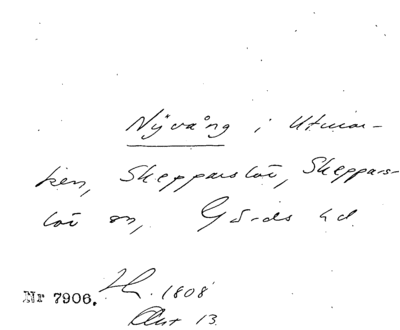 Nyvång i Utmar-
ken, Skepparslöv, Skeppars-
löv sn, Gärds hd.
Nr 7906. 1808
13.